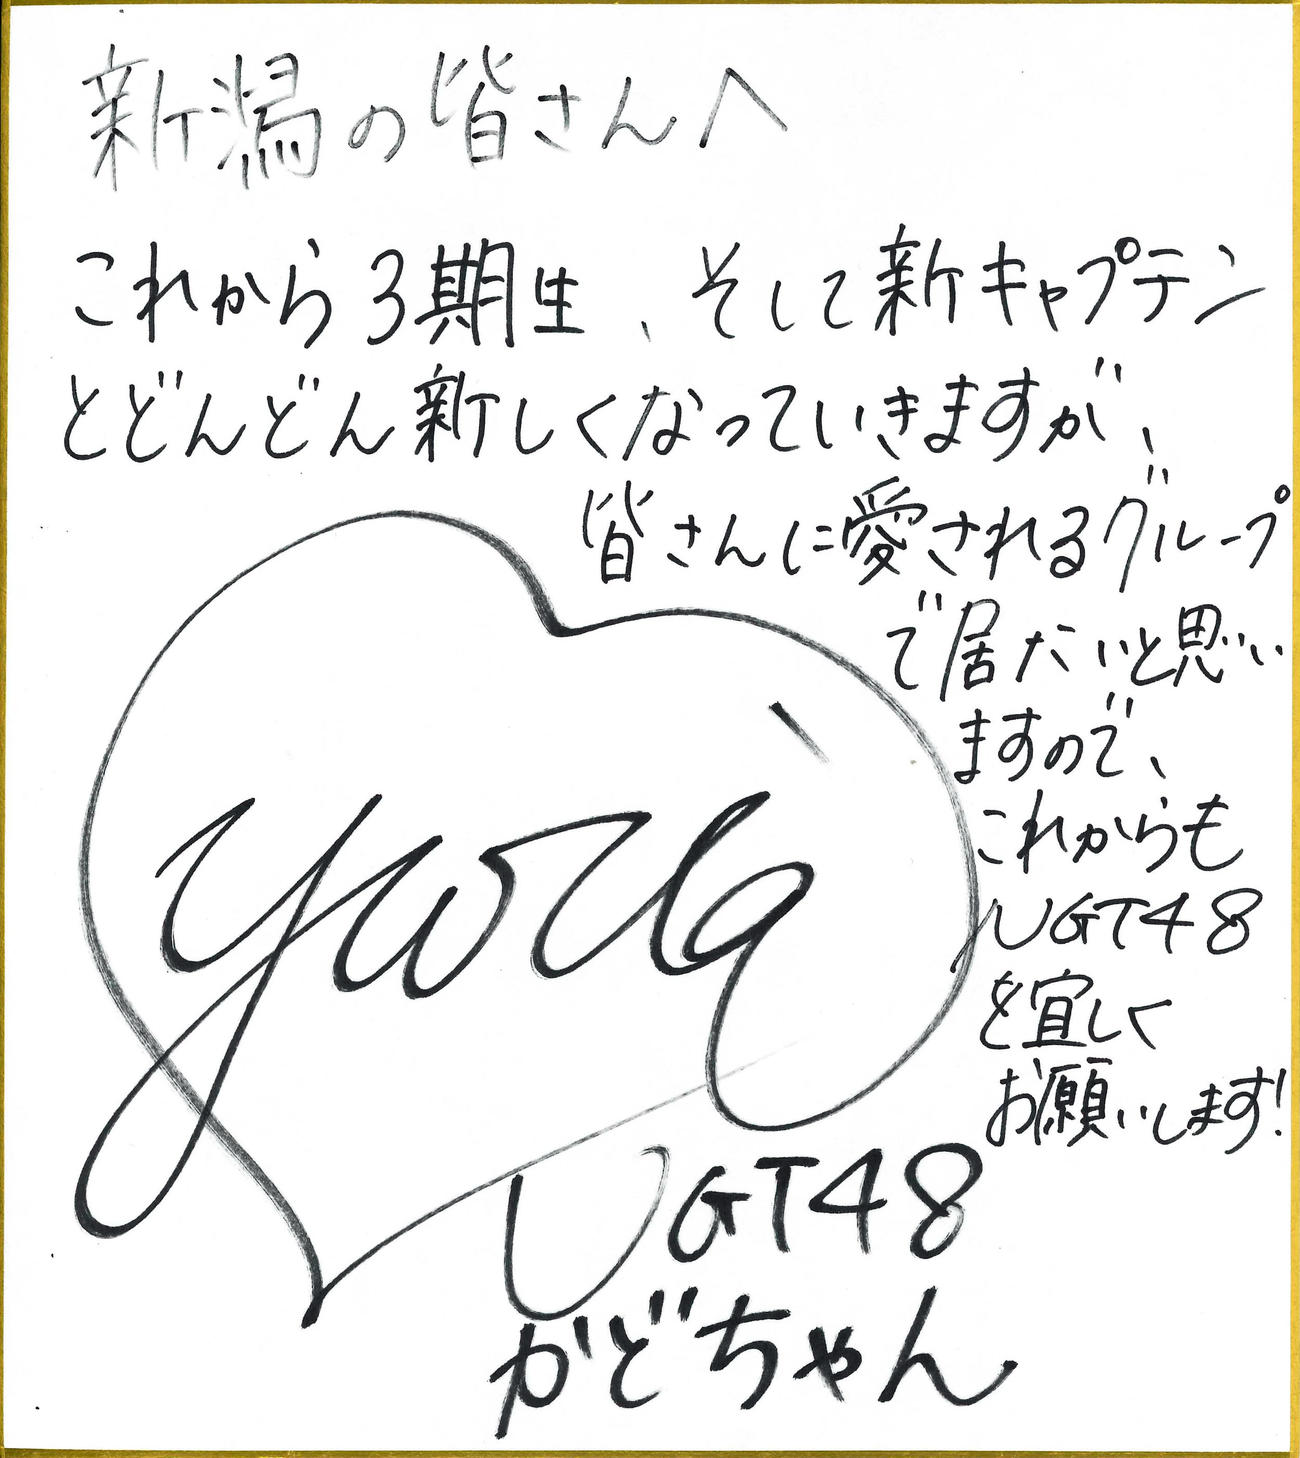 新潟の皆さんへ
これから3期生、そして新キャプテン
とどんどん新しくなっていきますが、
皆さんに愛されるグループ
で居たいと思い
ますので、
これからも
UGT48
を宜しく
お願いします!
UGT48
かどちゃん